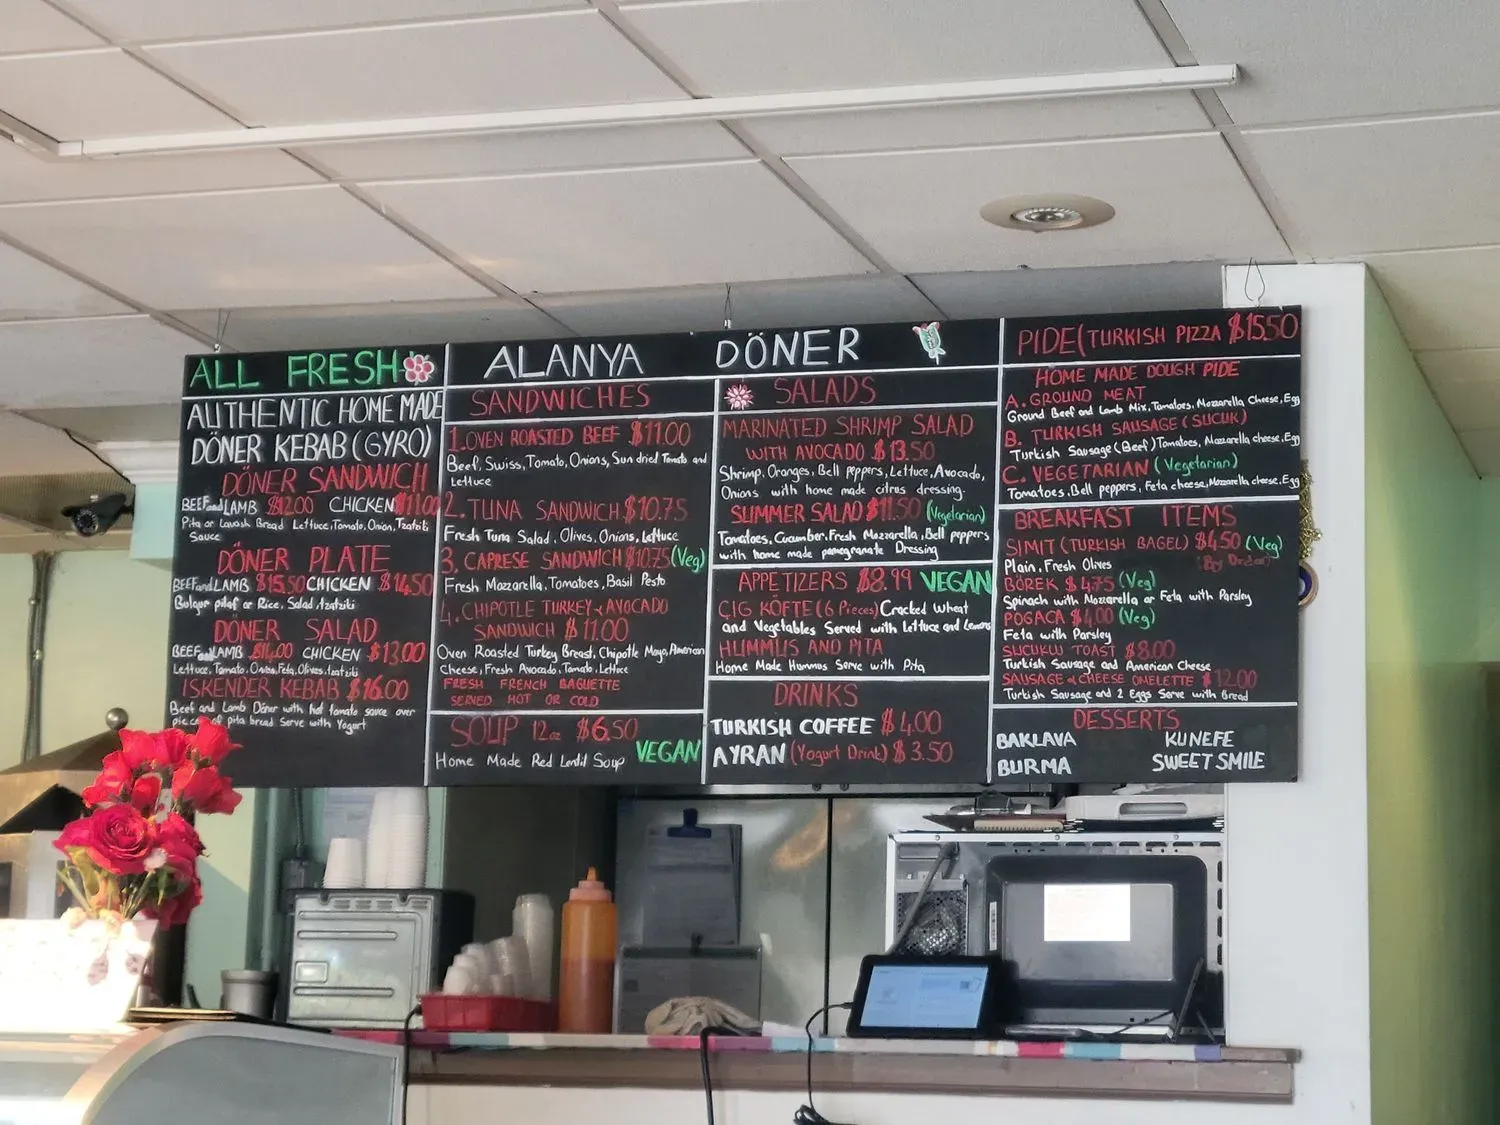 ALL FRESH
AUTHENTIC HOME MADE
DÖNER KEBAB (GYRO)
DÖNER SANDWICH
BEEF and LAMB $12.00 CHICKEN $11.00
Pita or Lavash Bread Lettuce, Tomato, Onion, Tzatziki
Sauce
DÖNER PLATE
BEEF and LAMB $15.50 CHICKEN $14.50
Bulgur pilaf or Rice, Salad, tzatziki
DÖNER SALAD
BEEF and LAMB $14.00 CHICKEN $13.00
Lettuce, Tomato, Onion, Feta, Olives, tzatziki
ISKENDER KEBAB $16.00
Beef and Lamb Döner with hot tomato sauce over
pieces of pita bread Serve with Yogurt
ALANYA DÖNER
SANDWICHES
1. OVEN ROASTED BEEF $11.00
Beef, Swiss, Tomato, Onions, Sun dried Tomato and
Lettuce
2. TUNA SANDWICH $10.75
Fresh Tuna Salad, Olives, Onions, Lettuce
3. CAPRESE SANDWICH $10.75 (Veg)
Fresh Mozzarella, Tomatoes, Basil Pesto
4. CHIPOTLE TURKEY & AVOCADO
SANDWICH $11.00
Oven Roasted Turkey Breast, Chipotle Mayo, American
Cheese, Fresh Avocado, Tomato, Lettuce
FRESH FRENCH BAGUETTE
SERVED HOT OR COLD
SOUP 12oz $6.50
VEGAN
Home Made Red Lentil Soup
SALADS
MARINATED SHRIMP SALAD
WITH AVOCADO $13.50
Shrimp, Oranges, Bell peppers, Lettuce, Avocado,
Onions with home made citrus dressing.
SUMMER SALAD $11.50 (Vegetarian)
Tomatoes, Cucumber, Fresh Mozzarella, Bell peppers
with home made pomegranate Dressing
APPETIZERS $8.99 VEGAN
ÇIG KÖFTE (6 Pieces) Cracked Wheat
and Vegetables Served with Lettuce and Lemons
HUMMUS AND PITA
Home Made Hummus Serve with Pita
DRINKS
TURKISH COFFEE $4.00
AYRAN (Yogurt Drink) $3.50
PIDE (TURKISH PIZZA $15.50
HOME MADE DOUGH PIDE
A. GROUND MEAT
Ground Beef and Lamb Mix, Tomatoes, Mozzarella Cheese, Egg
B. TURKISH SAUSAGE (SUCUK)
Turkish Sausage (Beef) Tomatoes, Mozzarella cheese, Egg
C. VEGETARIAN (Vegetarian)
Tomatoes, Bell peppers, Feta cheese, Mozzarella cheese, Egg
BREAKFAST ITEMS
SIMIT (TURKISH BAGEL) $4.50 (Veg)
Plain, Fresh Olives
BÖREK $4.75 (Veg)
Spinach with Mozzarella or Feta with Parsley
POGACA $4.00 (Veg)
Feta with Parsley
SUCUKLU TOAST $8.00
Turkish Sausage and American Cheese
SAUSAGE & CHEESE OMELETTE $12.00
Turkish Sausage and 2 Eggs Serve with Bread
DESSERTS
BAKLAVA KUNEFE
BURMA SWEET SMILE